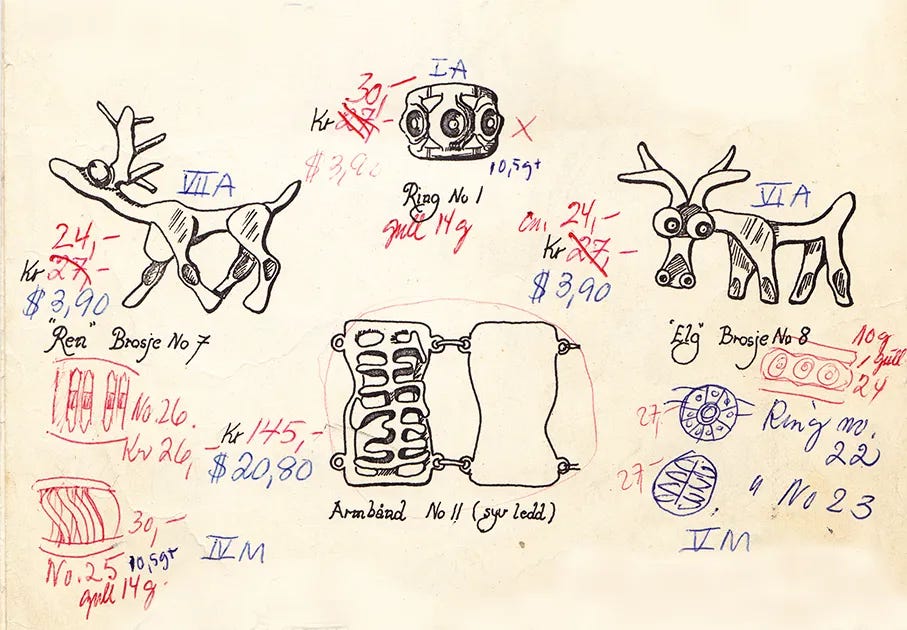 I A
30,-
Kr 27,-
$ 3,90
X
10,5gr
Ring No 1
gull 14 g
VII A
24,-
Kr 27,-
$ 3,90
"Ren" Brosje No 7
VI A
24,-
Kr 27,-
$ 3,90
"Elg" Brosje No 8
10 g
gull
24
No. 26
Kr 26,
Kr 145,-
$ 20,80
Armbånd No 11 (syv ledd)
27,-
Ring no.
22
27,-
" No 23
V M
30,-
No. 25 10,5gr
gull 14 g.
IV M